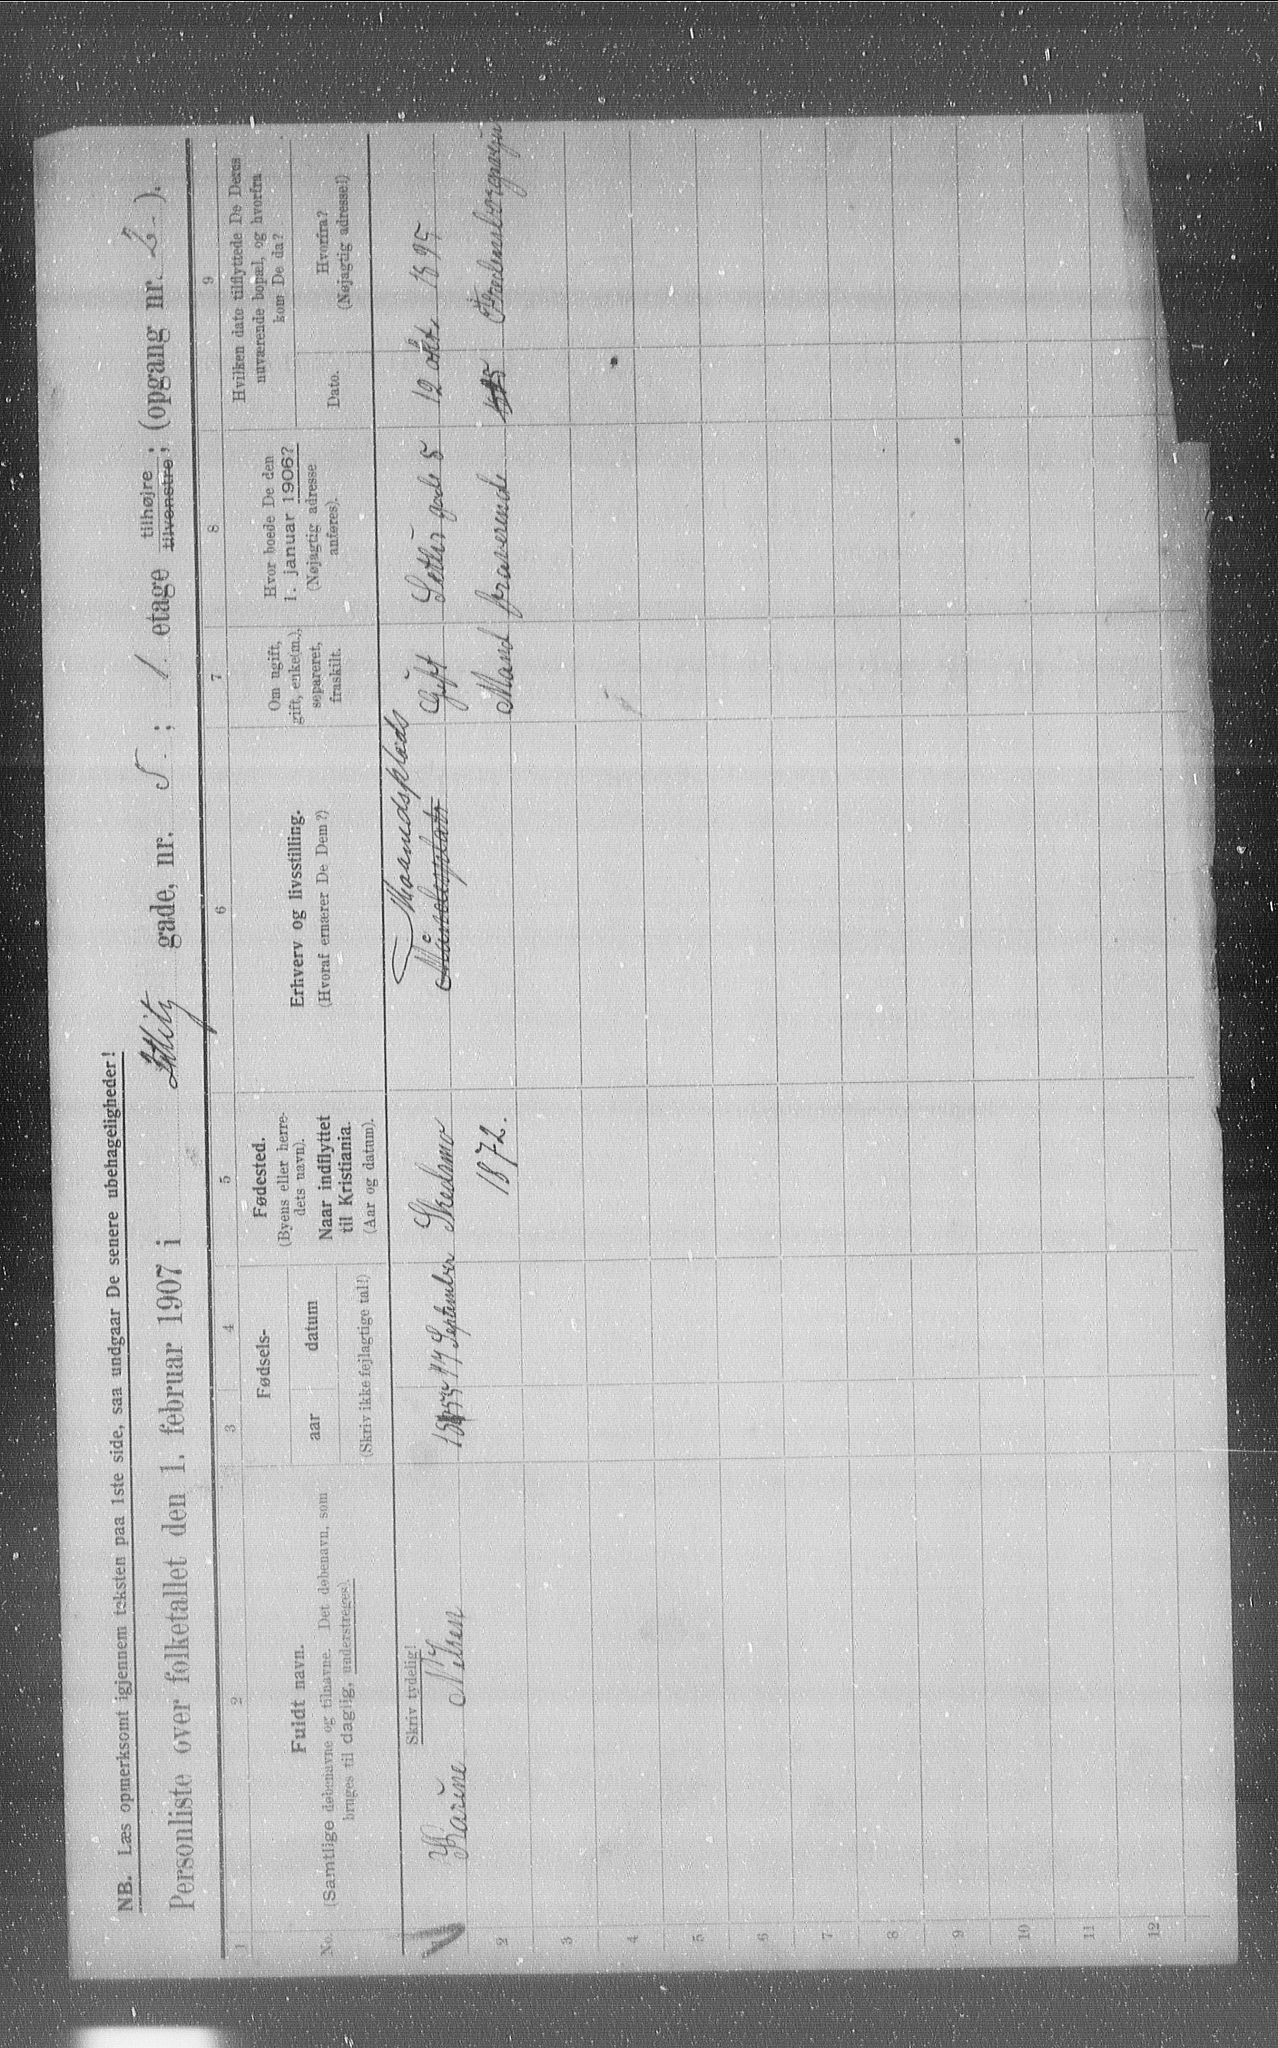 NB. Læs opmerksomt igjennem teksten paa 1ste side, saa undgaar De senere ubehageligheder!
Personliste over folketallet den 1. februar 1907 i gade, nr. 5. ; 1. etage tilhøjre ; tilvenstre ; (opgang nr. 2 ).
1 2 3 4 5 6 7 8 9
No.
Fuldt navn.
(Samtlige døbenavne og tilnavne. Det døbenavn, som
bruges til daglig, understreges).
Fødsels-
aar datum
(Skriv ikke fejlagtige tal!)
Fødested.
(Byens eller herre-
dets navn).
Naar indflyttet
til Kristiania.
(Aar og datum).
Erhverv og livsstilling.
(Hvoraf ernærer De Dem?)
Om ugift,
gift, enke(m.),
separeret,
fraskilt.
Hvor boede De den
1. januar 1906?
(Nøjagtig adresse
anføres).
Hvilken dato tilflyttede De Deres
nuværende bopæl, og hvorfra
kom De da?
Dato.
Hvorfra?
(Nøjagtig adresse!)
Skriv tydelig!
Maanedsplads
Karine Nilsen 14 September Skedsmo Gift gade 5 12 okt. 1895
2 1872. Mand fraverende
3
4
5
6
7
8
9
10
11
12